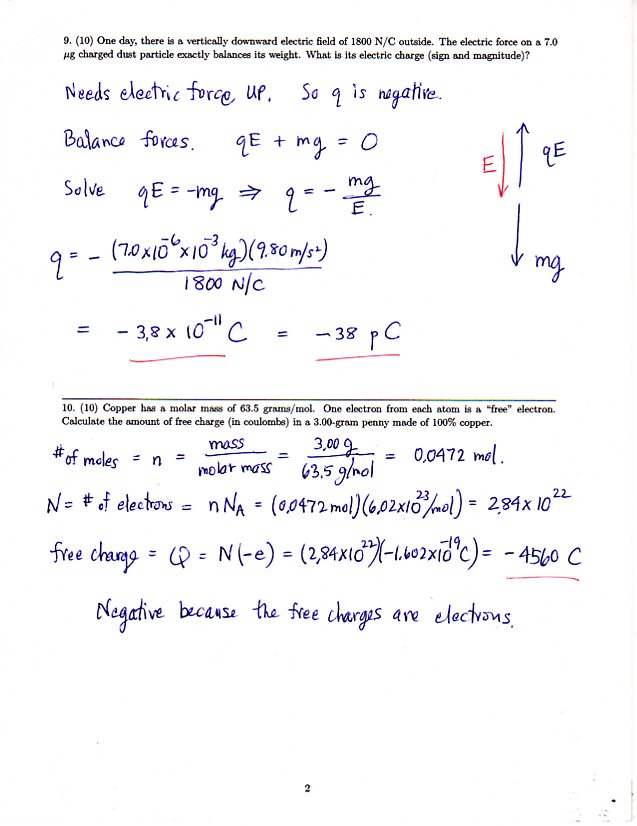 9. (10) One day, there is a vertically downward electric field of 1800 N/C outside. The electric force on a 7.0
μg charged dust particle exactly balances its weight. What is its electric charge (sign and magnitude)?
Needs electric force UP. So q is negative.
Balance forces. qE + mg = 0
E
qE
Solve qE = -mg ⇒ q = - mg/E.
mg
q = - (7.0x10⁻⁶x10⁻³ kg)(9.80 m/s²)
1800 N/C
= -3,8 x 10⁻¹¹ C = -38 pC
10. (10) Copper has a molar mass of 63.5 grams/mol. One electron from each atom is a "free" electron.
Calculate the amount of free charge (in coulombs) in a 3.00-gram penny made of 100% copper.
# of moles = n = mass/molar mass = 3,00 g/63,5 g/mol = 0,0472 mol.
N = # of electrons = nN_A = (0,0472 mol)(6,02x10²³/mol) = 2,84 x 10²²
free charge = Q = N(-e) = (2,84x10²²)(-1.602x10⁻¹⁹C) = -4560 C
Negative because the free charges are electrons.
2